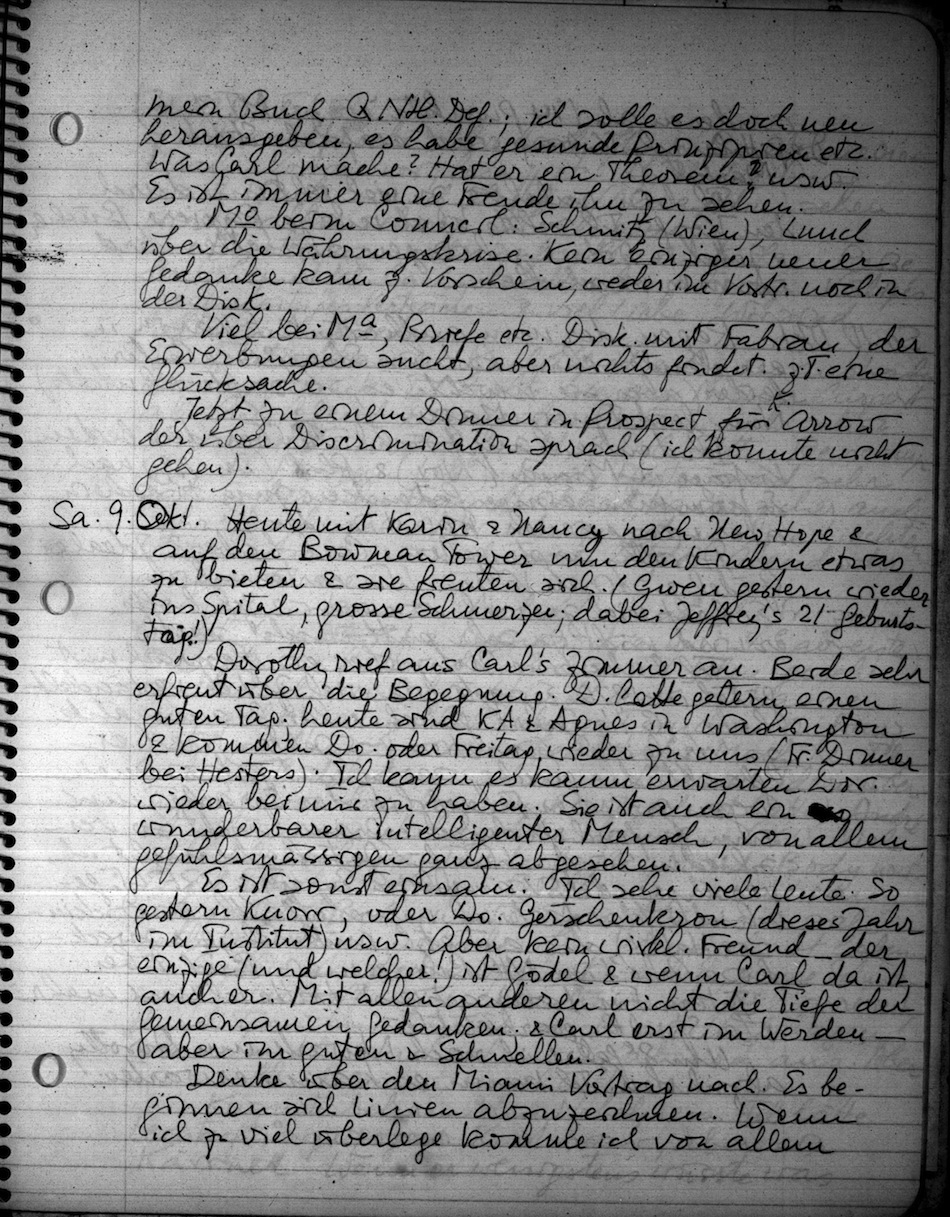 mein Buch Q NH. Def.; ich solle es doch neu
herausgeben, es habe gesunde Prinzipien etc.
Was Carl mache? Hat er ein Theorem? usw.
Es ist immer eine Freude ihn zu sehen.
Mo beim Council: Schmitz (Wien), Lunch
über die Währungskrise. Kein einziger neuer
Gedanke kam z. Vorschein, weder im Vortr. noch in
der Disk.
Viel bei Ma, Briefe etc. Disk. mit Fabian, der
Erwerbungen sucht, aber nichts findet. z.T. eine
Glücksache.
Jetzt zu einem Dinner in Prospect für K. Arrow
der über Discrimination sprach (ich konnte nicht
gehen).
Sa. 9. Okt. Heute mit Karin & Nancy nach New Hope &
auf den Bowman Tower um den Kindern etwas
zu bieten & sie freuten sich. (Gwen gestern wieder
ins Spital, grosse Schmerzen; dabei Jeffrey's 21 Geburts-
tag!)
Dorothy rief aus Carl's Zimmer an. Beide sehr
erfreut über die Begegnung. D. hatte gestern einen
guten Tag. heute sind KA & Agnes in Washington
& kommen Do. oder Freitag wieder zu uns (Fr. Dinner
bei Hesters). Ich kann es kaum erwarten Dor.
wieder bei mir zu haben. Sie ist auch ein
wunderbarer intelligenter Mensch, von allem
gefühlsmässigen ganz abgesehen.
Es ist sonst einsam. Ich sehe viele Leute. So
gestern Knorr, oder Do. Gerschenkron (dieses Jahr
im Institut) usw. Aber kein wirkl. Freund – der
einzige (und welcher!) ist Gödel & wenn Carl da ist,
auch er. Mit allen anderen nicht die Tiefe der
gemeinsamen Gedanken. & Carl erst im Werden –
aber im guten & Schnellen.
Denke über den Miami Vortrag nach. Es be-
ginnen sich Linien abzuzeichnen. Wenn
ich zu viel überlege komme ich von allem